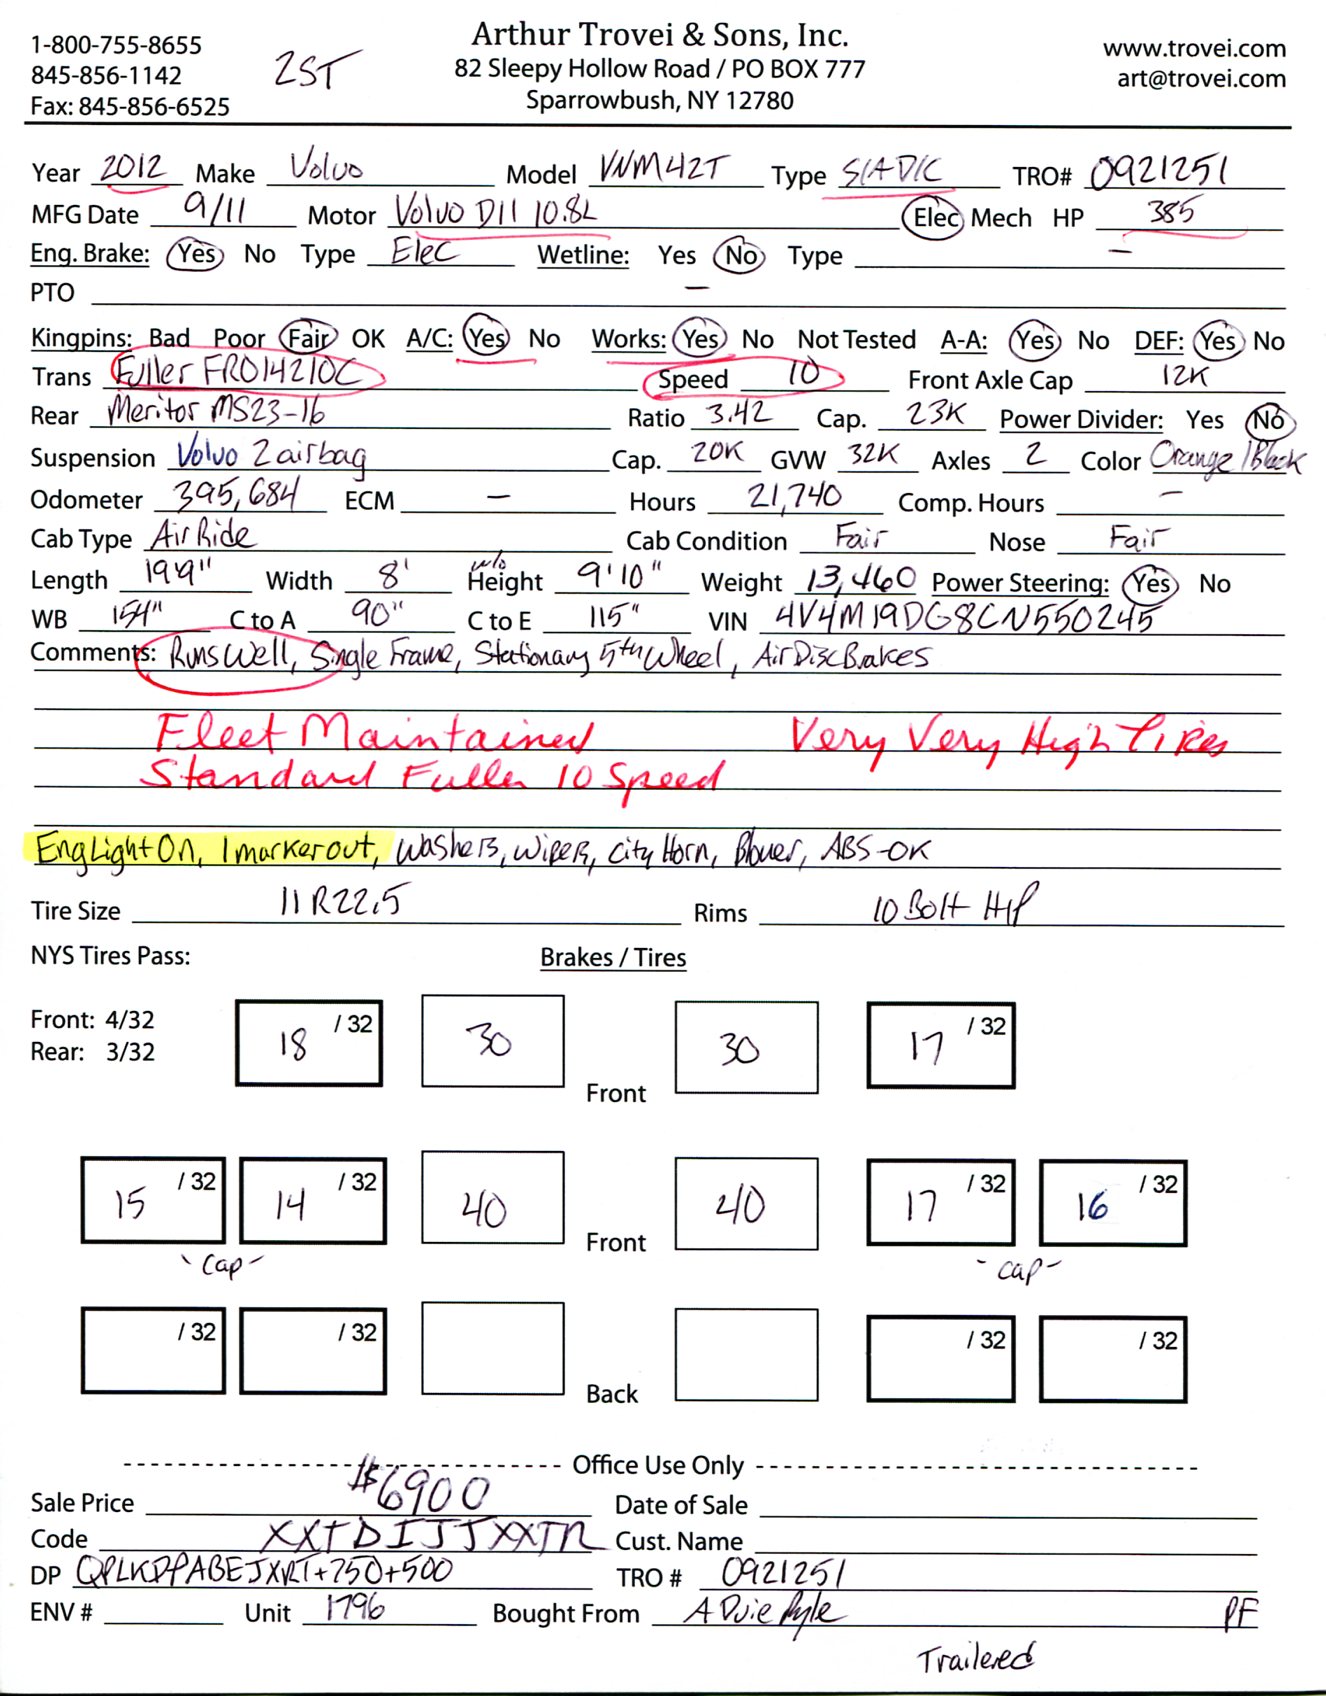 1-800-755-8655
845-856-1142
Fax: 845-856-6525
2ST
Arthur Trovei & Sons, Inc.
82 Sleepy Hollow Road / PO BOX 777
Sparrowbush, NY 12780
www.trovei.com
art@trovei.com
Year 2012 Make Volvo Model VNM42T Type S/A D/C TRO# 0921251
MFG Date 9/11 Motor Volvo D11 10.8L Elec Mech HP 385
Eng. Brake: Yes No Type Elec Wetline: Yes No Type —
PTO —
Kingpins: Bad Poor Fair OK A/C: Yes No Works: Yes No Not Tested A-A: Yes No DEF: Yes No
Trans Fuller FRO14210C Speed 10 Front Axle Cap 12K
Rear Meritor MS23-16 Ratio 3.42 Cap. 23K Power Divider: Yes No
Suspension Volvo 2 airbag Cap. 20K GVW 32K Axles 2 Color Orange/Black
Odometer 395,684 ECM — Hours 21,740 Comp. Hours —
Cab Type Air Ride Cab Condition Fair Nose Fair
Length 19'9" Width 8' w/o Height 9'10" Weight 13,460 Power Steering: Yes No
WB 154" C to A 90" C to E 115" VIN 4V4M19DG8CN550245
Comments: Runs Well, Single Frame, Stationary 5th Wheel, Air Disc Brakes
Fleet Maintained Very Very High Tires
Standard Fuller 10 Speed
Eng Light On, 1 marker out, Washers, Wipers, City Horn, Blower, ABS-OK
Tire Size 11R22.5 Rims 10 Bolt H/P
NYS Tires Pass: Brakes / Tires
Front: 4/32
Rear: 3/32
18 /32 30 Front 30 17 /32
15 /32 14 /32 40 Front 40 17 /32 16 /32
-Cap- -Cap-
/32 /32 Back /32 /32
Office Use Only
Sale Price $6900 Date of Sale
Code XXTDIJJXXTR Cust. Name
DP QPLKDPABEJXRT+750+500 TRO # 0921251
ENV # Unit 1796 Bought From A Duie Pyle PF
Trailered